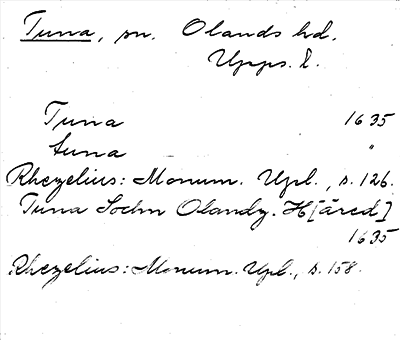 Tuna, sn. Olands hd.
Upps. l.
Tuna 1635
tuna "
Rhezelius: Monum. Upl., s. 126.
Tuna Sochn Olandz. H[äred]
1635
Rhezelius: Monum. Upl., s. 158.